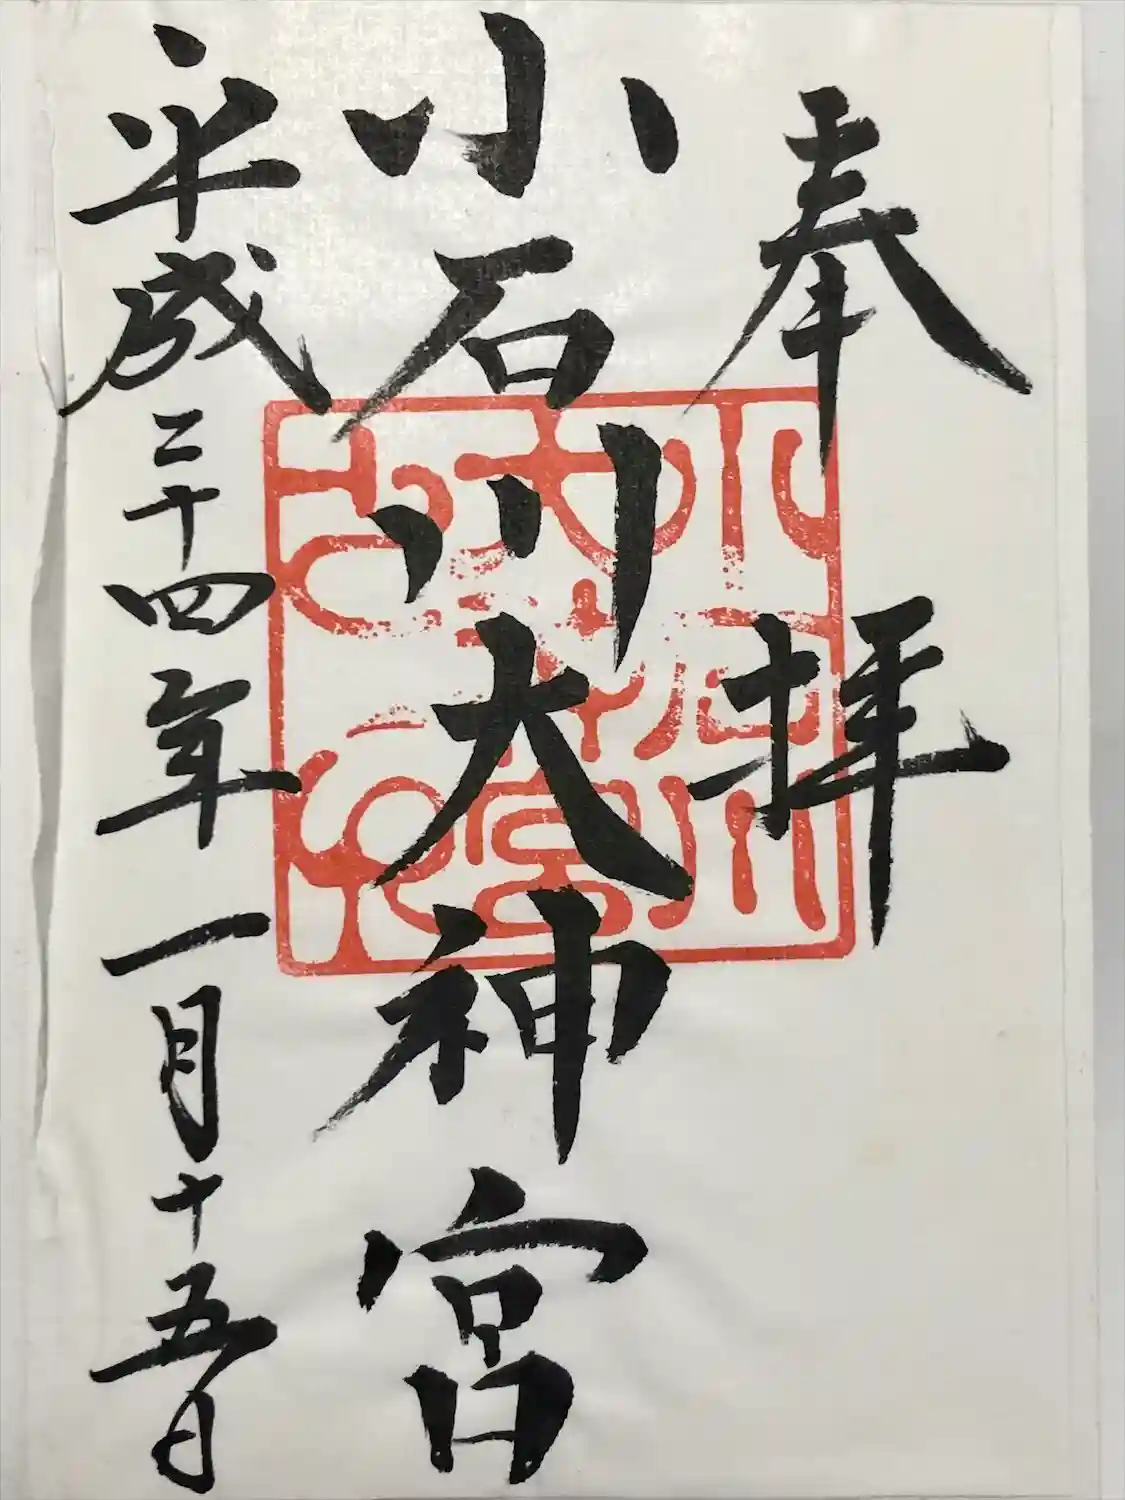 奉拝
小石川大神宮
平成二十四年一月十五日
小石川
大神宮